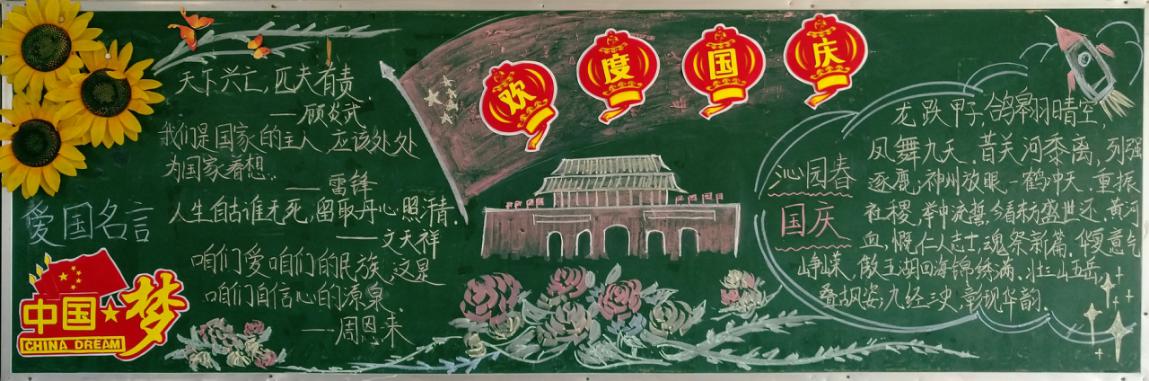 天下兴亡，匹夫有责
——顾炎武
我们是国家的主人，应该处处
为国家着想。
——雷锋
人生自古谁无死，留取丹心照汗青。
——文天祥
咱们爱咱们的民族，这是
咱们自信心的源泉。
——周恩来
爱国名言
中国梦
CHINA DREAM
欢度国庆
沁园春
国庆
龙跃甲子，鸽翱羽晴空，
凤舞九天。昔关河黍离，列强
逐鹿；神州放眼，一鹤冲天。重振
社稷，举中流誓，今看盛世还，黄河
血，慨仁人志士，魂祭新篇。华夏意气
峥嵘，傲五湖四海锦绣满。壮三山五岳，
叠古风姿；九经三史，彰现华韵。